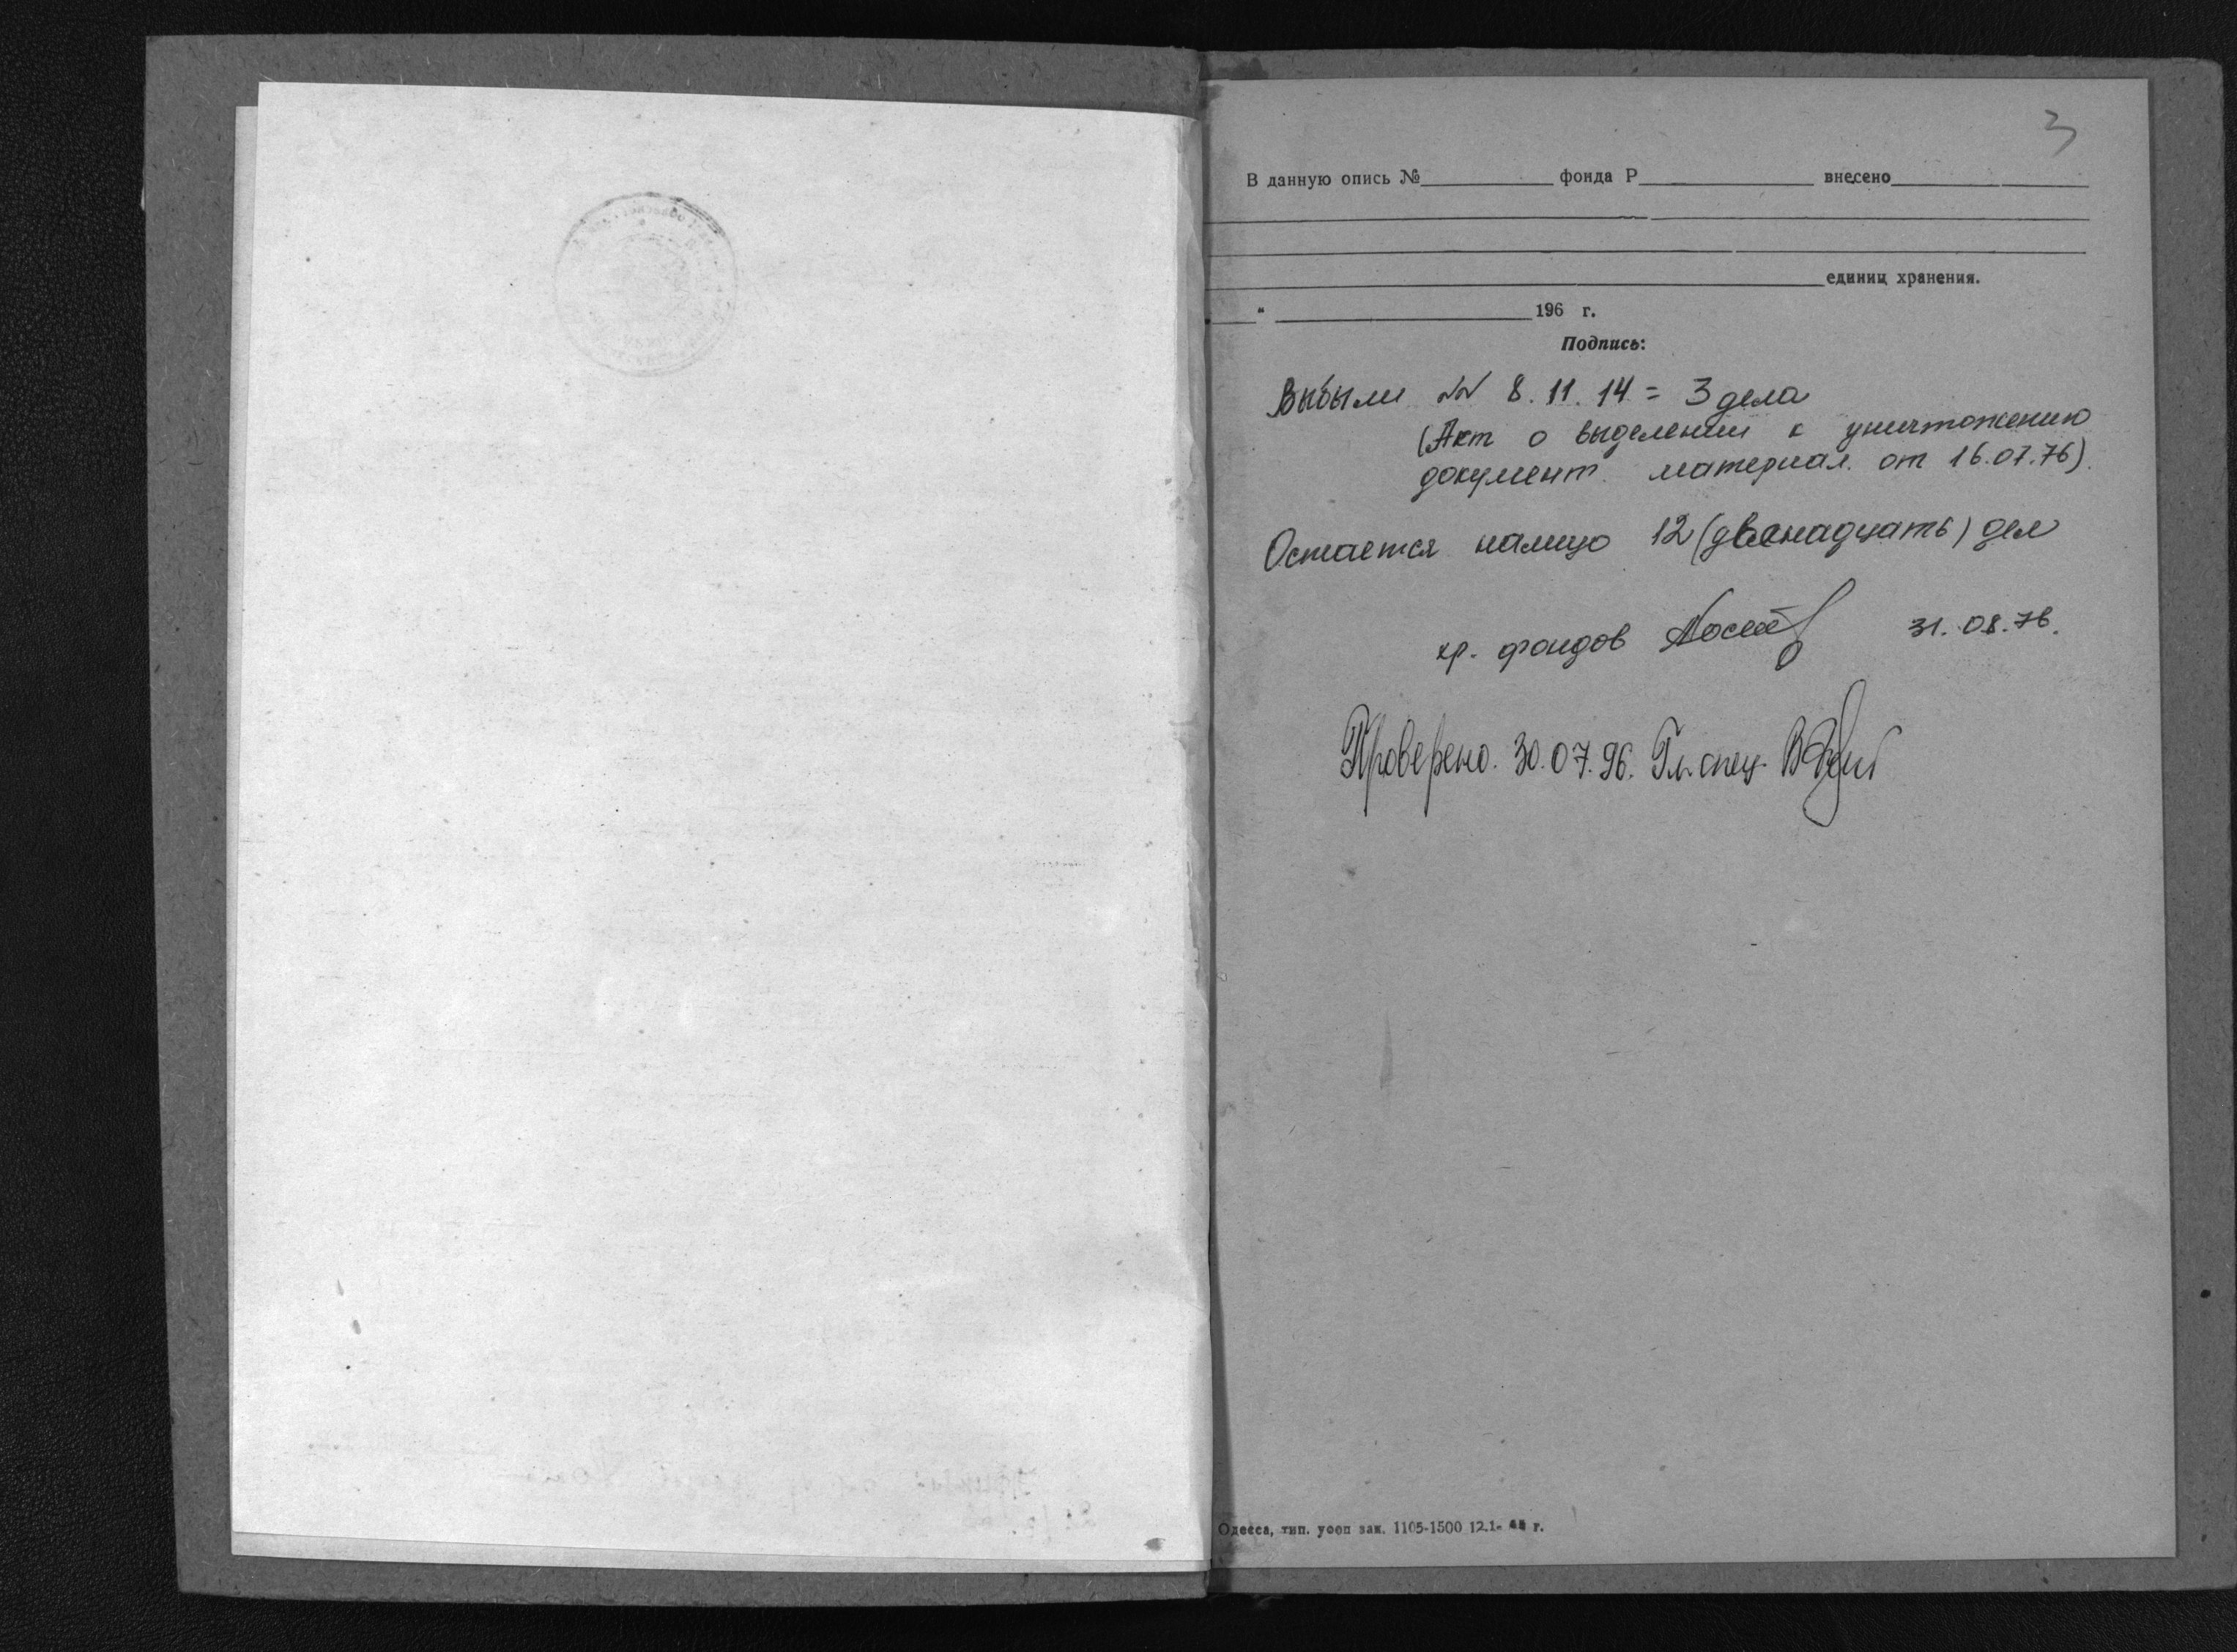 3
В данную опись № фонда Р внесено
единиц хранения.
" 196 г.
Подпись:
Выбыли №№ 8. 11. 14 = 3 дела
(Акт о выделении к уничтожению
документ. материал. от 16.07.76).
Остается налицо 12 (двенадцать) дел
хр. фондов 31.08.76.
Проверено. 30.07.96. Гл. спец.
Одесса, тип. уооп зак. 1105-1500 12.1- г.